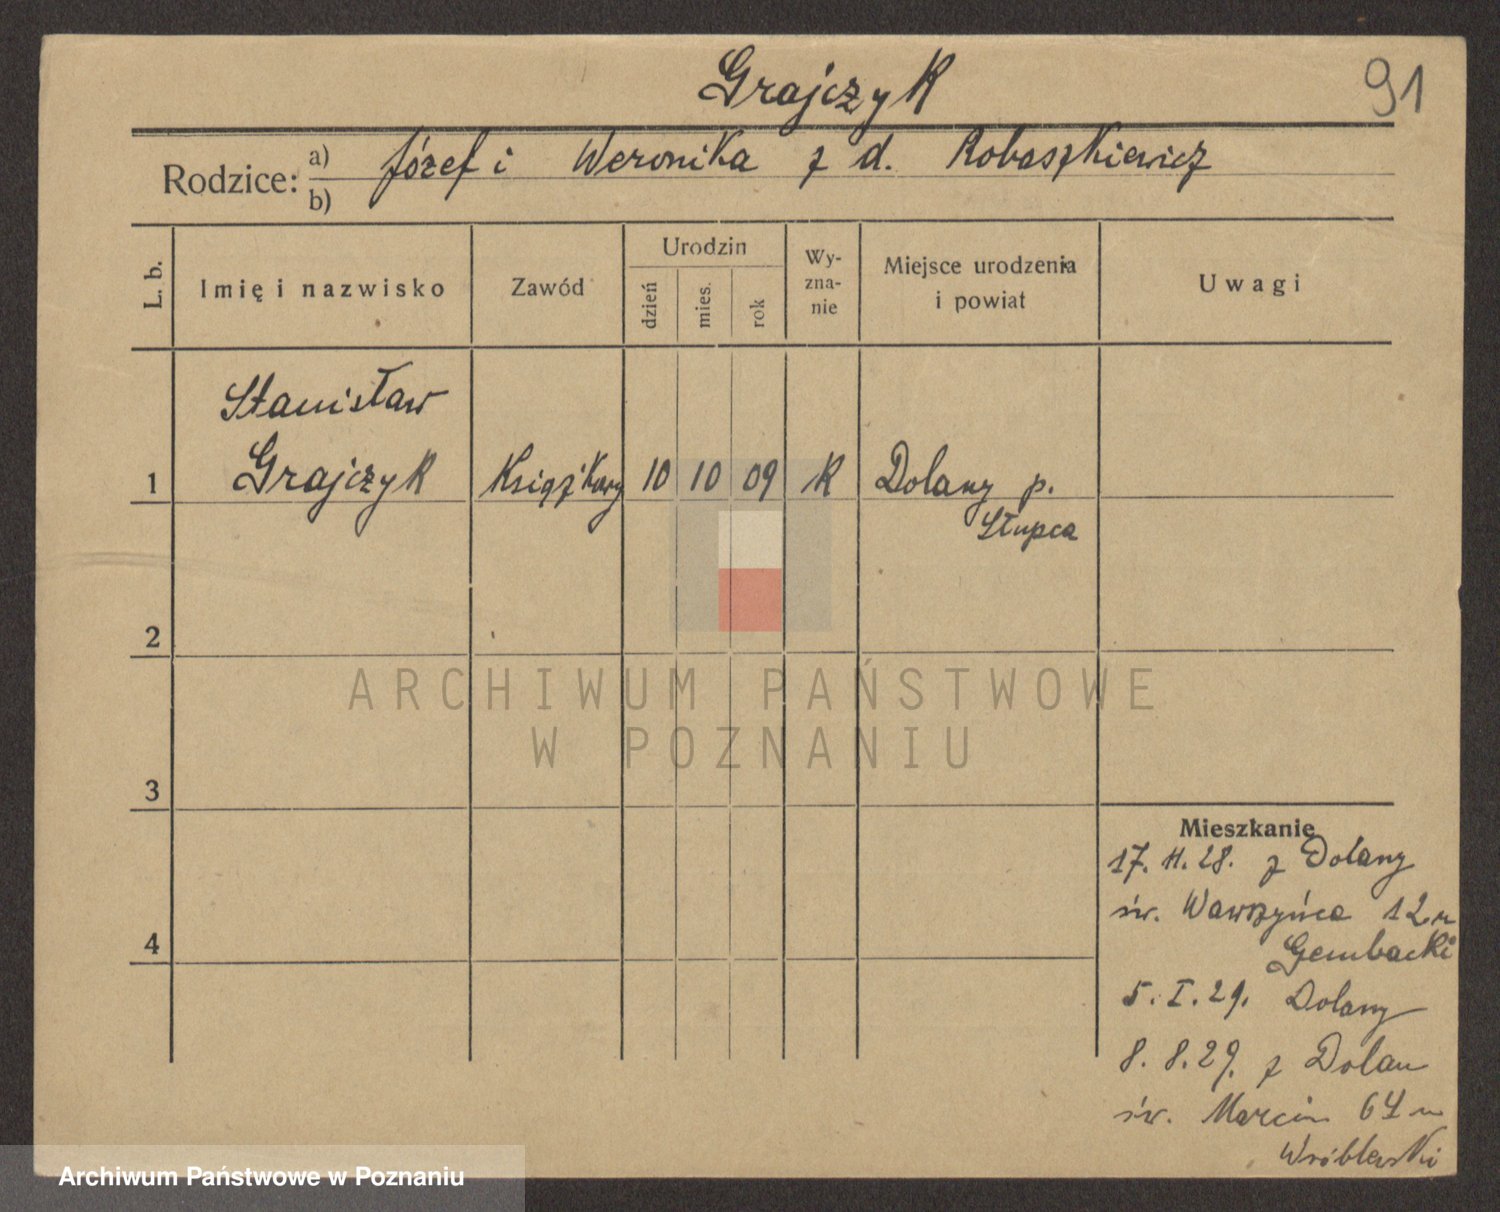 Grajczyk
91
Rodzice: a) Józef i Weronika z d. Robaszkiewicz
b)
L. b.
Imię i nazwisko
Zawód
Urodzin
dzień
mies.
rok
Wy-
zna-
nie
Miejsce urodzenia
i powiat
Uwagi
Stanisław
1 Grajczyk Książkowy 10 10 09 K Dolany p.
Słupca
2
3
4
Mieszkanie
17. 11. 28. z Dolany
św. Wawrzyńca 12 u
Gembacki
5. I. 29. Dolany
8. 8. 29. z Dolan
św. Marcin 64 u
Wróblewski
ARCHIWUM PAŃSTWOWE
W POZNANIU
Archiwum Państwowe w Poznaniu